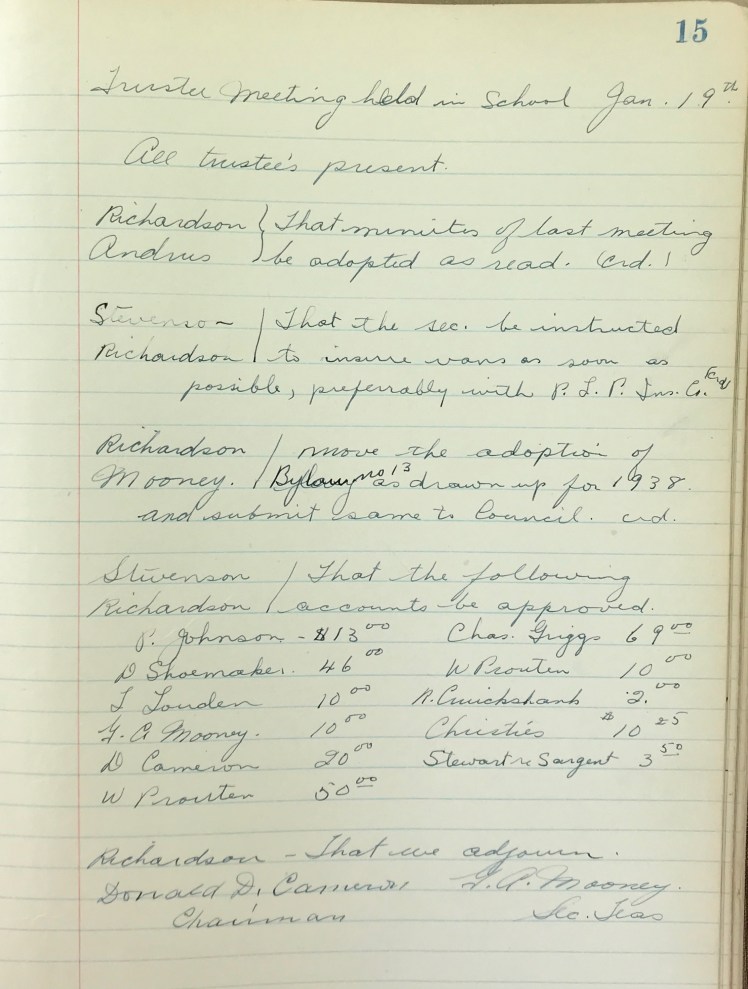 15
Trustee Meeting held in School Jan. 19th.
All trustee's present.
Richardson } That minutes of last meeting
Andrus } be adopted as read. Crd.
Stevenson / That the sec. be instructed
Richardson / to insure vans as soon as
possible, preferrably with P. L. P. Ins. Co. Crd
Richardson / move the adoption of
Mooney. / Bylaw no 13 as drawn up for 1938.
and submit same to Council. crd.
Stevenson / That the following
Richardson / accounts be approved.
P. Johnson - $13 00 Chas. Griggs 69 00
D Shoemaker. 46 00 W Prouten 10 00
L Louden 10 00 R. Cruickshank 2. 00
G. A. Mooney. 10 00 Christies $10 25
D Cameron 20 00 Stewart re Sargent 3 50
W Prouten 50 00
Richardson - That we adjourn.
Donald D. Cameron G. A. Mooney.
Chairman Sec. Teas